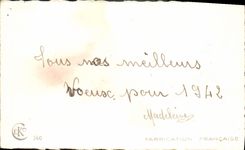 Tous mes meilleurs
Voeux pour 1942
Madeleine
FABRICATION FRANÇAISE